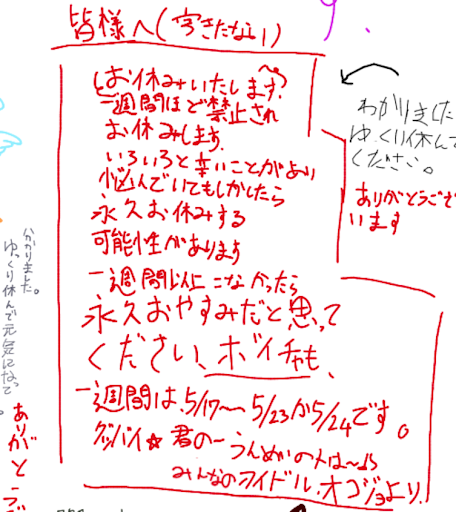 皆様へ(字きたない)
お休みいたします。
一週間ほど禁止され
お休みします。
いろいろと辛いことがあり
悩んでいてもしかしたら
永久お休みする
可能性があります
一週間以上こなかったら
永久おやすみだと思って
ください、ボイチャも、
一週間は、5/17〜5/23か5/24です。
グッバイ☆君の〜うんめいの人は〜
みんなのアイドル、オコジョより、
わかりました
ゆっくり休んで
ください。
ありがとうござ
います
わかりました。
ゆっくり休んで元気になって
ありがとうご